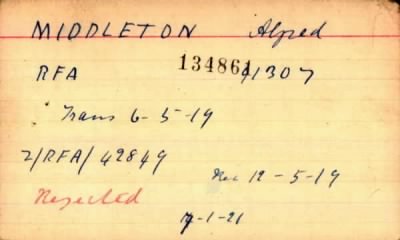 MIDDLETON Alfred
RFA 134861 41307
Trans 6-5-19
2/RFA/42849
Rec 12-5-19
Rejected
4-1-21